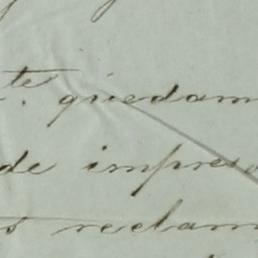 te. quedam
de impreso
s reclam